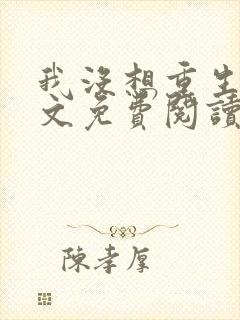 我沒想重生
文免費閱讀
陳孝厚